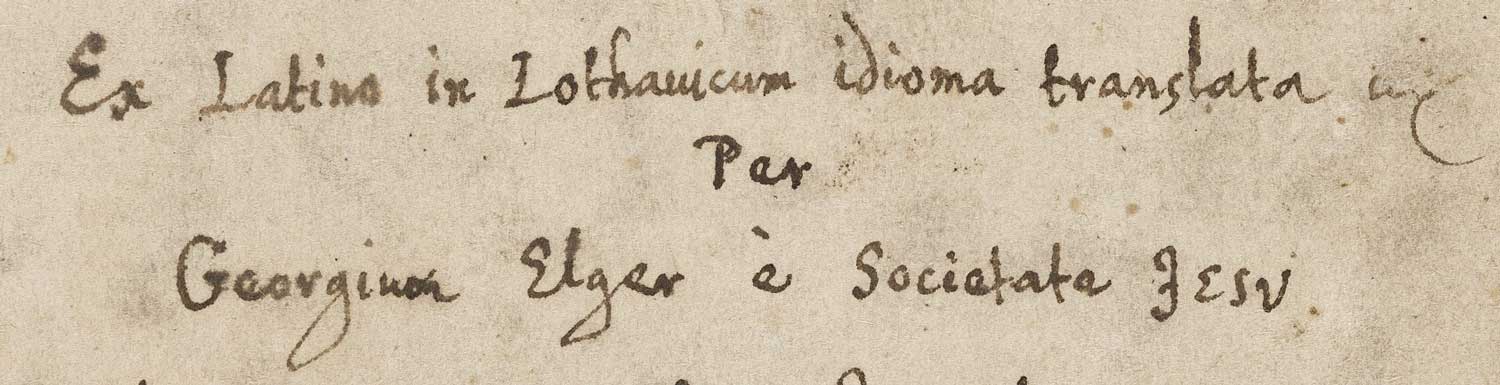 Ex Latino in Lothauicum idioma translata
Per
Georgium Elger è Societate JESV